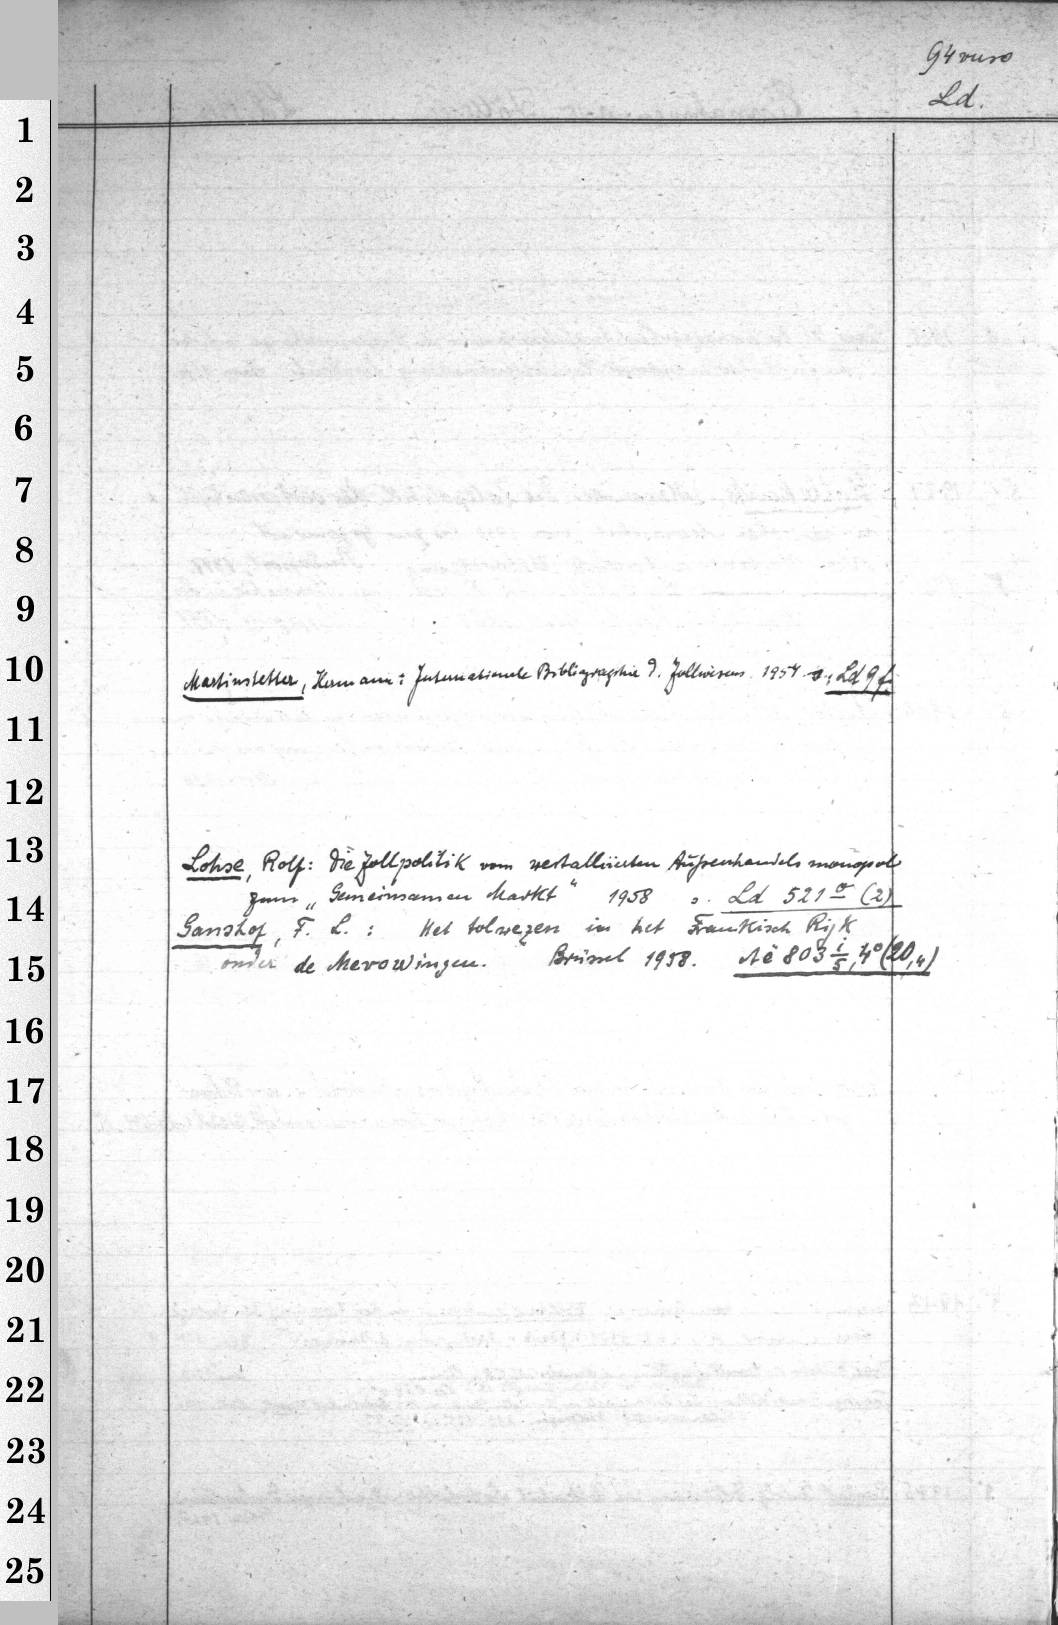 94 verso
Ld.
1
2
3
4
5
6
7
8
9
10 Martinstetter, Hermann: Internationale Bibliographie d. Zollwesens. 1954. s. Ld 9 f.
11
12
13 Lohse, Rolf: Die Zollpolitik vom westalliierten Außenhandelsmonopol
14 zum „Gemeinsamen Markt" 1958 s. Ld 521 (2)
Ganshof, F. L.: Het tolwezen in het Frankisch Rijk
15 onder de Merowingen. Brüssel 1958. Aë 803 i/5, 4° (20,4)
16
17
18
19
20
21
22
23
24
25